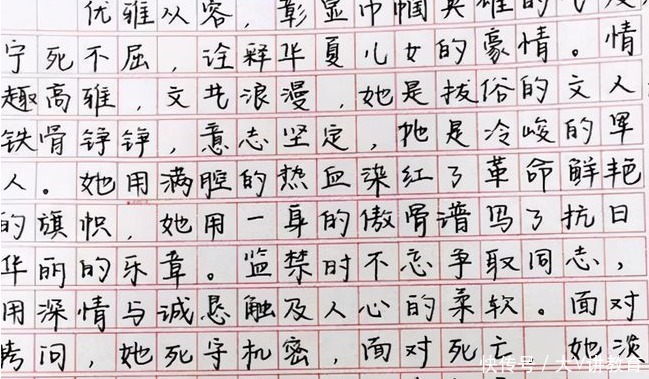 优雅从容，彰显巾帼英雄的
宁死不屈，诠释华夏儿女的豪情。情
趣高雅，文艺浪漫，她是拔俗的文人
铁骨铮铮，意志坚定，她是冷峻的军
人。她用满腔的热血染红了革命鲜艳
的旗帜，她用一身的傲骨谱写了抗日
华丽的乐章。监禁时不忘争取同志，
用深情与诚恳触及人心的柔软。面对
拷问，她死守机密，面对死亡，她淡
快传号/大V讲教育